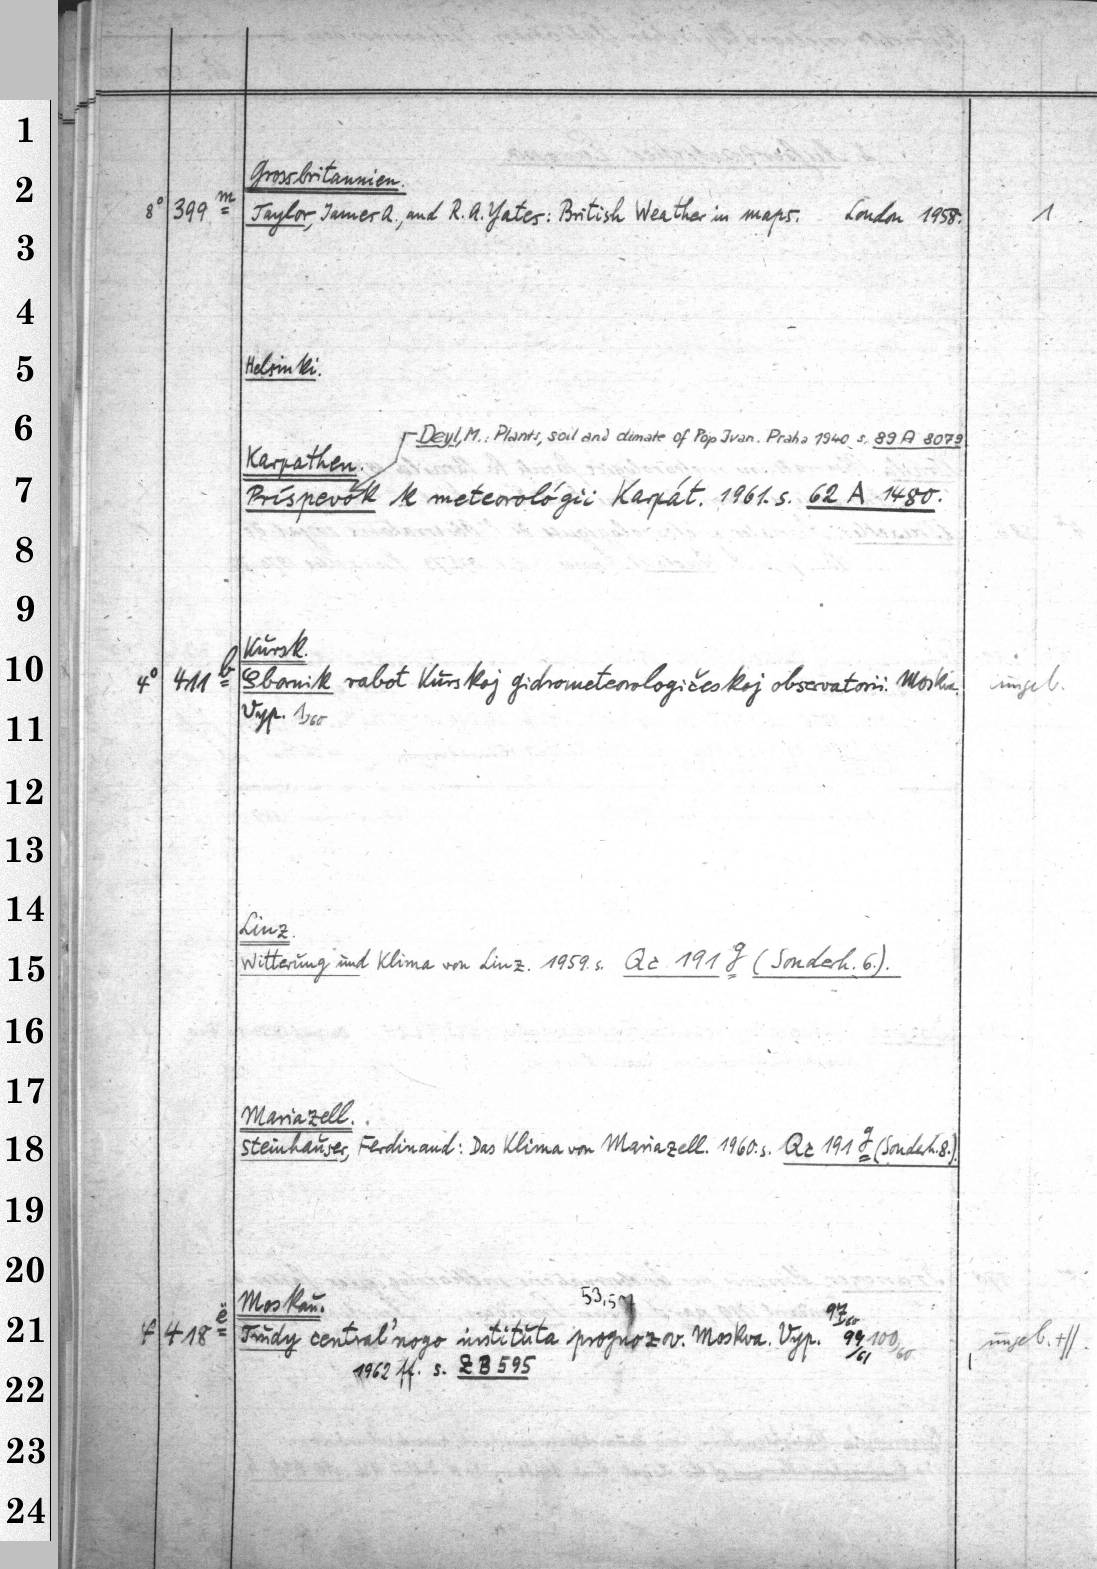 1
2
Grossbritannien.
8° 399 m Taylor, James A., and R. A. Yates: British Weather in maps. London 1958. 1
3
4
5
Helsinki.
6
Deyl, M.: Plants, soil and climate of Pop Ivan. Praha 1940 s. 89 A 8079
Karpathen.
7
Príspevők k meteorológii Karpát. 1961. s. 62 A 1480.
8
9
Kursk.
10
4° 411 b Sbornik rabot Kurskoj gidrometeorologičeskoj observatorii. Moskva. ungeb.
Vyp. 1,60
11
12
13
14
Linz.
15
Witterung und Klima von Linz. 1959. s. Qz 191 g (Sonderh. 6.).
16
17
Mariazell.
18
Steinhauser, Ferdinand: Das Klima von Mariazell. 1960. s. Qz 191 g (Sonderh. 8.).
19
20
Moskau. 53,
97,60
21
4° 418 e Trudy central'nogo instituta prognozov. Moskva. Vyp. 99/61 100,60 ungeb. +//
1962 ff. s. ZB 595
22
23
24